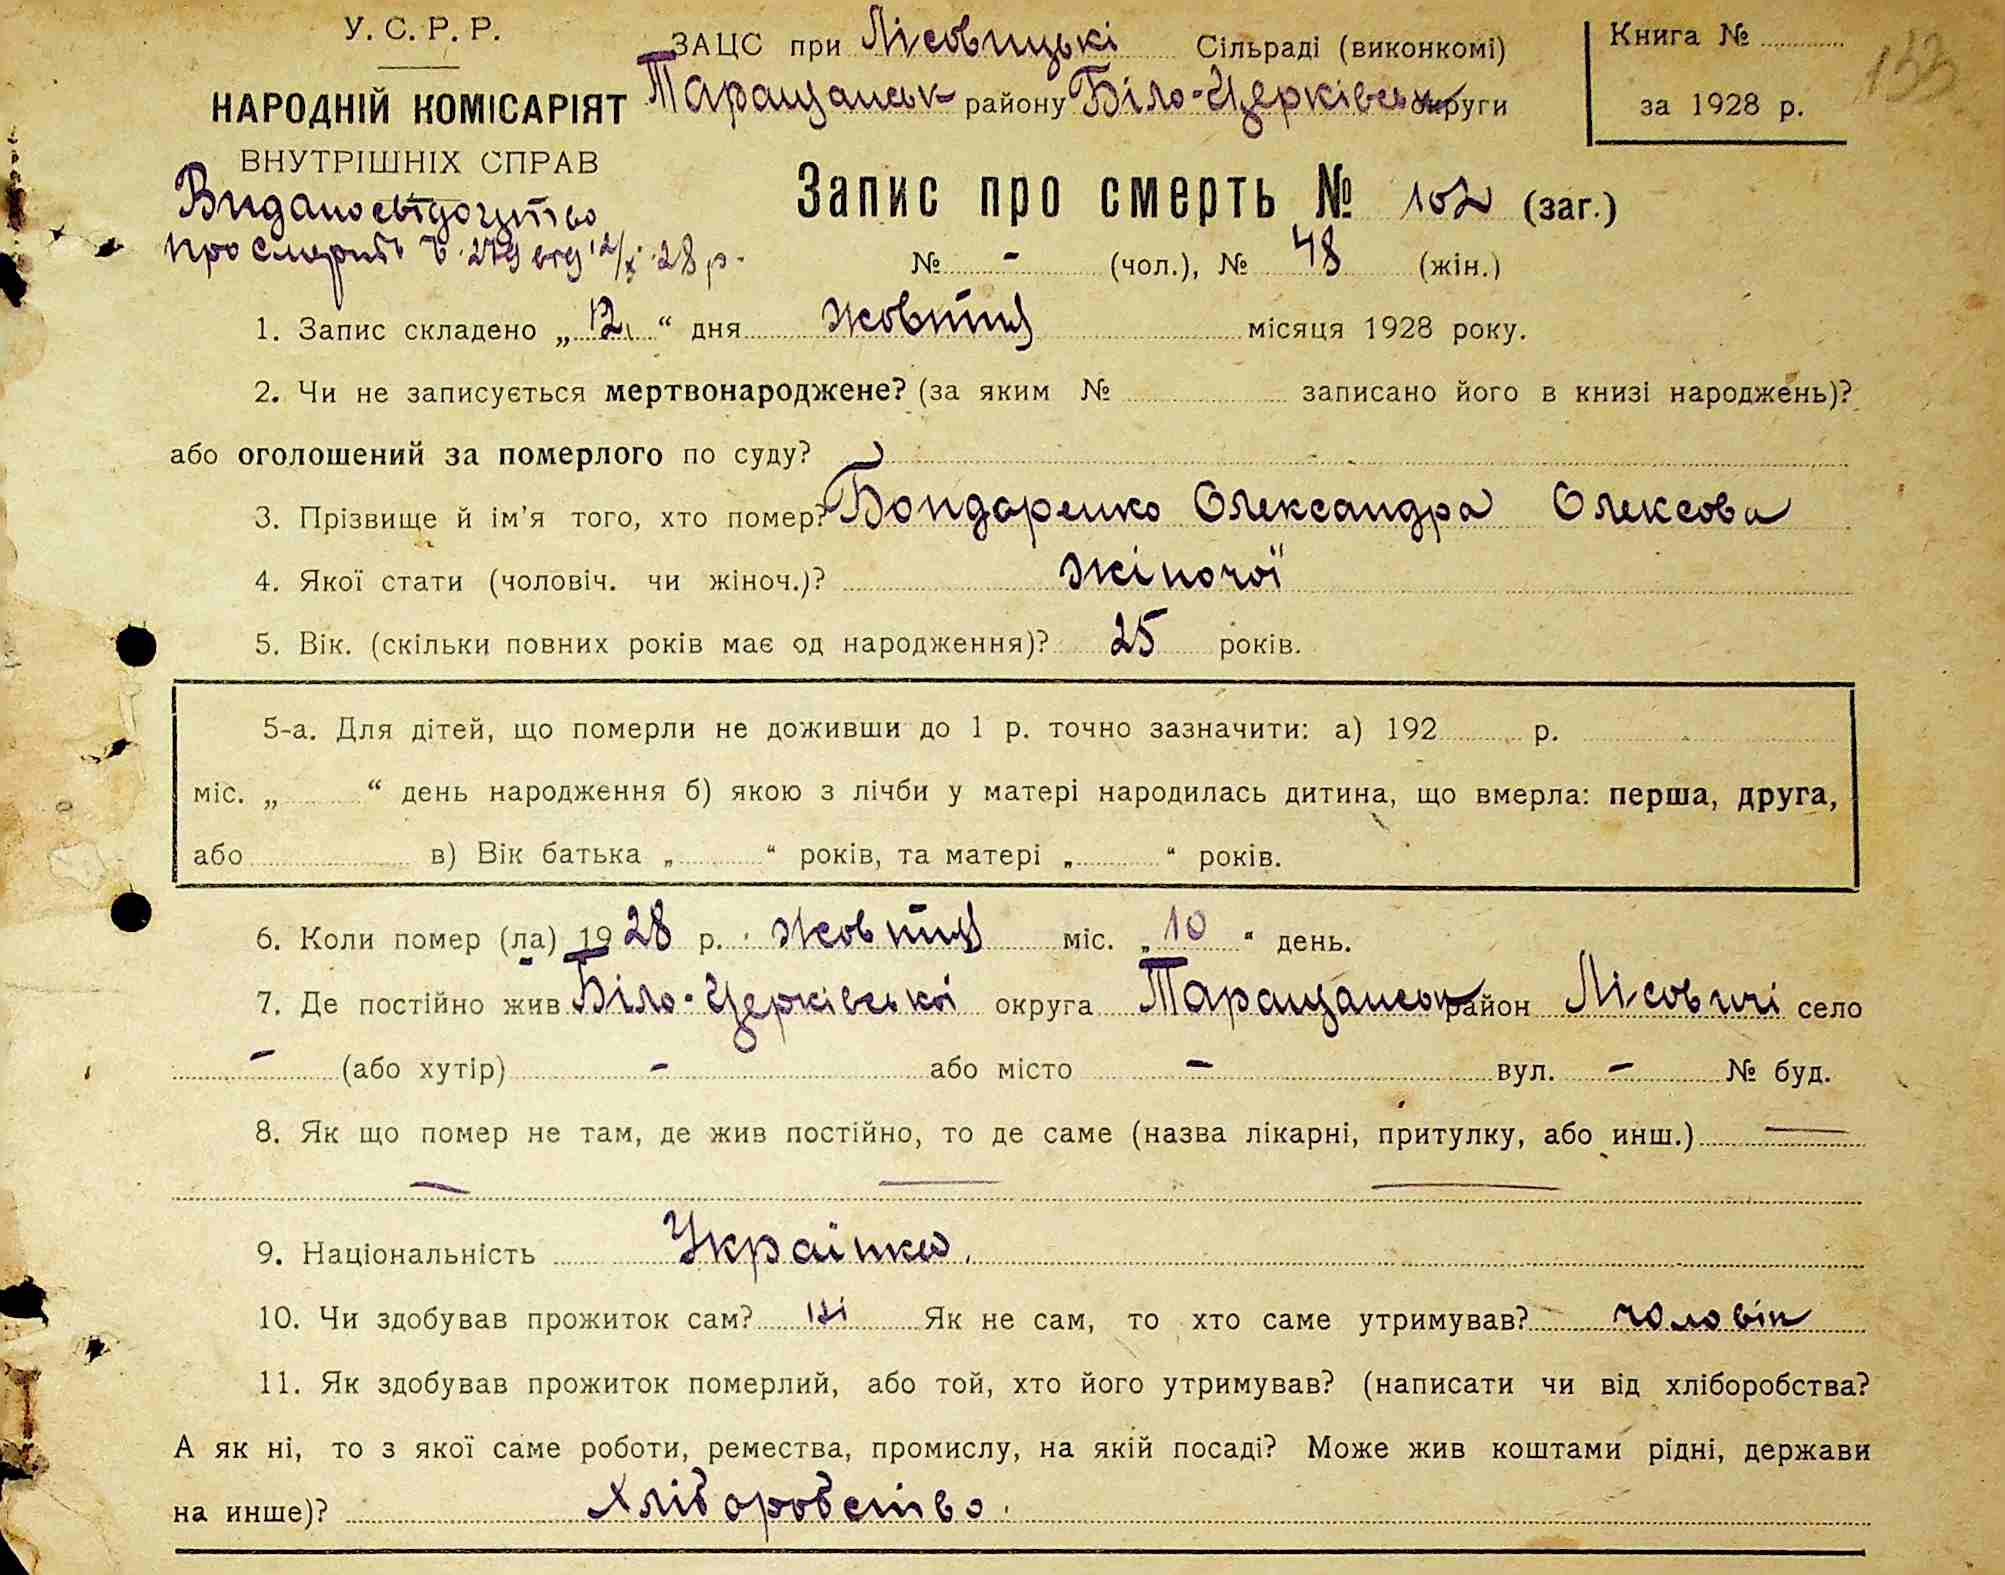 У. С. Р. Р.
НАРОДНІЙ КОМІСАРІЯТ
ВНУТРІШНІХ СПРАВ
ЗАЦС при Лісовицькі Сільраді (виконкомі)
Таращанськ району Біло-Церківськ округи
Книга №
за 1928 р.
133
Видано свідоцтво
про смерть № 279 від 12/X 28 р.
Запис про смерть № 102 (заг.)
№ - (чол.), № 48 (жін.)
1. Запис складено „12“ дня жовтня місяця 1928 року.
2. Чи не записується мертвонароджене? (за яким № записано його в книзі народжень)?
або оголошений за померлого по суду?
3. Прізвище й ім'я того, хто помер? Бондаренко Олександра Олексова
4. Якої стати (чоловіч. чи жіноч.)? жіночої
5. Вік. (скільки повних років має од народження)? 25 років.
5-а. Для дітей, що померли не доживши до 1 р. точно зазначити: а) 192 р.
міс. „ “ день народження б) якою з лічби у матері народилась дитина, що вмерла: перша, друга,
або в) Вік батька „ “ років, та матері „ “ років.
6. Коли помер (ла) 1928 р. жовтня міс. „10“ день.
7. Де постійно жив Біло-Церківської округа Таращанськ район Лісовичі село
- (або хутір) - або місто - вул. - № буд.
8. Як що помер не там, де жив постійно, то де саме (назва лікарні, притулку, або инш.) —
— — —
9. Національність Українка.
10. Чи здобував прожиток сам? ні Як не сам, то хто саме утримував? чоловік
11. Як здобував прожиток померлий, або той, хто його утримував? (написати чи від хліборобства?
А як ні, то з якої саме роботи, ремества, промислу, на якій посаді? Може жив коштами рідні, держави
на инше)? Хліборобство